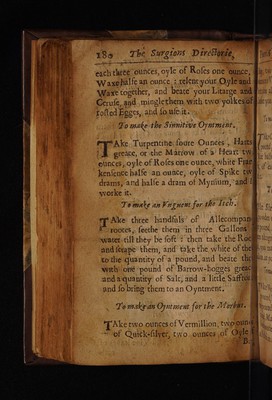 180 The Surgions Directorie,
each three ounces, oyle of Roses one ounce,
Waxe halfe an ounce; relent your Oyle and
Waxe together, and beate your Litarge and
Ceruse, and mingle them with two yolkes of
rosted Egges, and so use it.
To make the Sinnitive Oyntment.
TAke Turpentine foure Ounces, Harts
greace, or the Marow of a Heart two
ounces, oyle of Roses one ounce, white Fran
kensence halfe an ounce, oyle of Spike two
drams, and halfe a dram of Mynium, and
worke it.
To make an Unguent for the Itch.
TAke three handfuls of Allecompane
rootes, seethe them in three Gallons
water till they be soft: then take the Roo
and scrape them, and take the white of the
to the quantity of a pound, and beate the
with one pound of Barrow-hogges greace
and a quantity of Salt, and a little Saffron
and so bring them to an Oyntment.
To make an Oyntment for the Morbus.
TAke two ounces of Vermillion, two ounc
of Quick-silver, two ounces of Oyle